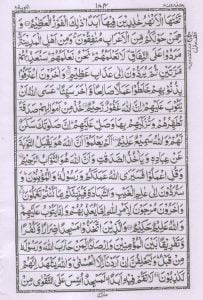 ۱۸۴
تَحْتَهَا الْاَنْهٰرُ خٰلِدِیْنَ فِیْهَاۤ اَبَدًا ذٰلِكَ الْفَوْزُ الْعَظِیْمُ وَ
مِمَّنْ حَوْلَكُمْ مِّنَ الْاَعْرَابِ مُنٰفِقُوْنَ وَمِنْ اَهْلِ الْمَدِیْنَةِ
مَرَدُوْا عَلَی النِّفَاقِ لَا تَعْلَمُهُمْ نَحْنُ نَعْلَمُهُمْ سَنُعَذِّبُهُمْ
مَّرَّتَیْنِ ثُمَّ یُرَدُّوْنَ اِلٰی عَذَابٍ عَظِیْمٍ وَاٰخَرُوْنَ اعْتَرَفُوْا
بِذُنُوْبِهِمْ خَلَطُوْا عَمَلًا صَالِحًا وَّاٰخَرَ سَیِّئًا عَسَی اللّٰهُ اَنْ
یَّتُوْبَ عَلَیْهِمْ اِنَّ اللّٰهَ غَفُوْرٌ رَّحِیْمٌ خُذْ مِنْ اَمْوَالِهِمْ صَدَقَةً
تُطَهِّرُهُمْ وَتُزَكِّیْهِمْ بِهَا وَصَلِّ عَلَیْهِمْ اِنَّ صَلٰوتَكَ سَكَنٌ
لَّهُمْ وَاللّٰهُ سَمِیْعٌ عَلِیْمٌ اَلَمْ یَعْلَمُوْۤا اَنَّ اللّٰهَ هُوَ یَقْبَلُ التَّوْبَةَ
عَنْ عِبَادِهٖ وَیَاْخُذُ الصَّدَقٰتِ وَاَنَّ اللّٰهَ هُوَ التَّوَّابُ الرَّحِیْمُ
وَقُلِ اعْمَلُوْا فَسَیَرَی اللّٰهُ عَمَلَكُمْ وَرَسُوْلُهٗ وَالْمُؤْمِنُوْنَ وَ
سَتُرَدُّوْنَ اِلٰی عٰلِمِ الْغَیْبِ وَالشَّهَادَةِ فَیُنَبِّئُكُمْ بِمَا كُنْتُمْ تَعْمَلُوْنَ
وَاٰخَرُوْنَ مُرْجَوْنَ لِاَمْرِ اللّٰهِ اِمَّا یُعَذِّبُهُمْ وَاِمَّا یَتُوْبُ عَلَیْهِمْ
وَاللّٰهُ عَلِیْمٌ حَكِیْمٌ وَالَّذِیْنَ اتَّخَذُوْا مَسْجِدًا ضِرَارًا وَّكُفْرًا
وَّتَفْرِیْقًۢا بَیْنَ الْمُؤْمِنِیْنَ وَاِرْصَادًا لِّمَنْ حَارَبَ اللّٰهَ وَرَسُوْلَهٗ
مِنْ قَبْلُ وَلَیَحْلِفُنَّ اِنْ اَرَدْنَاۤ اِلَّا الْحُسْنٰی وَاللّٰهُ یَشْهَدُ اِنَّهُمْ
لَكٰذِبُوْنَ لَا تَقُمْ فِیْهِ اَبَدًا لَمَسْجِدٌ اُسِّسَ عَلَی التَّقْوٰی مِنْ